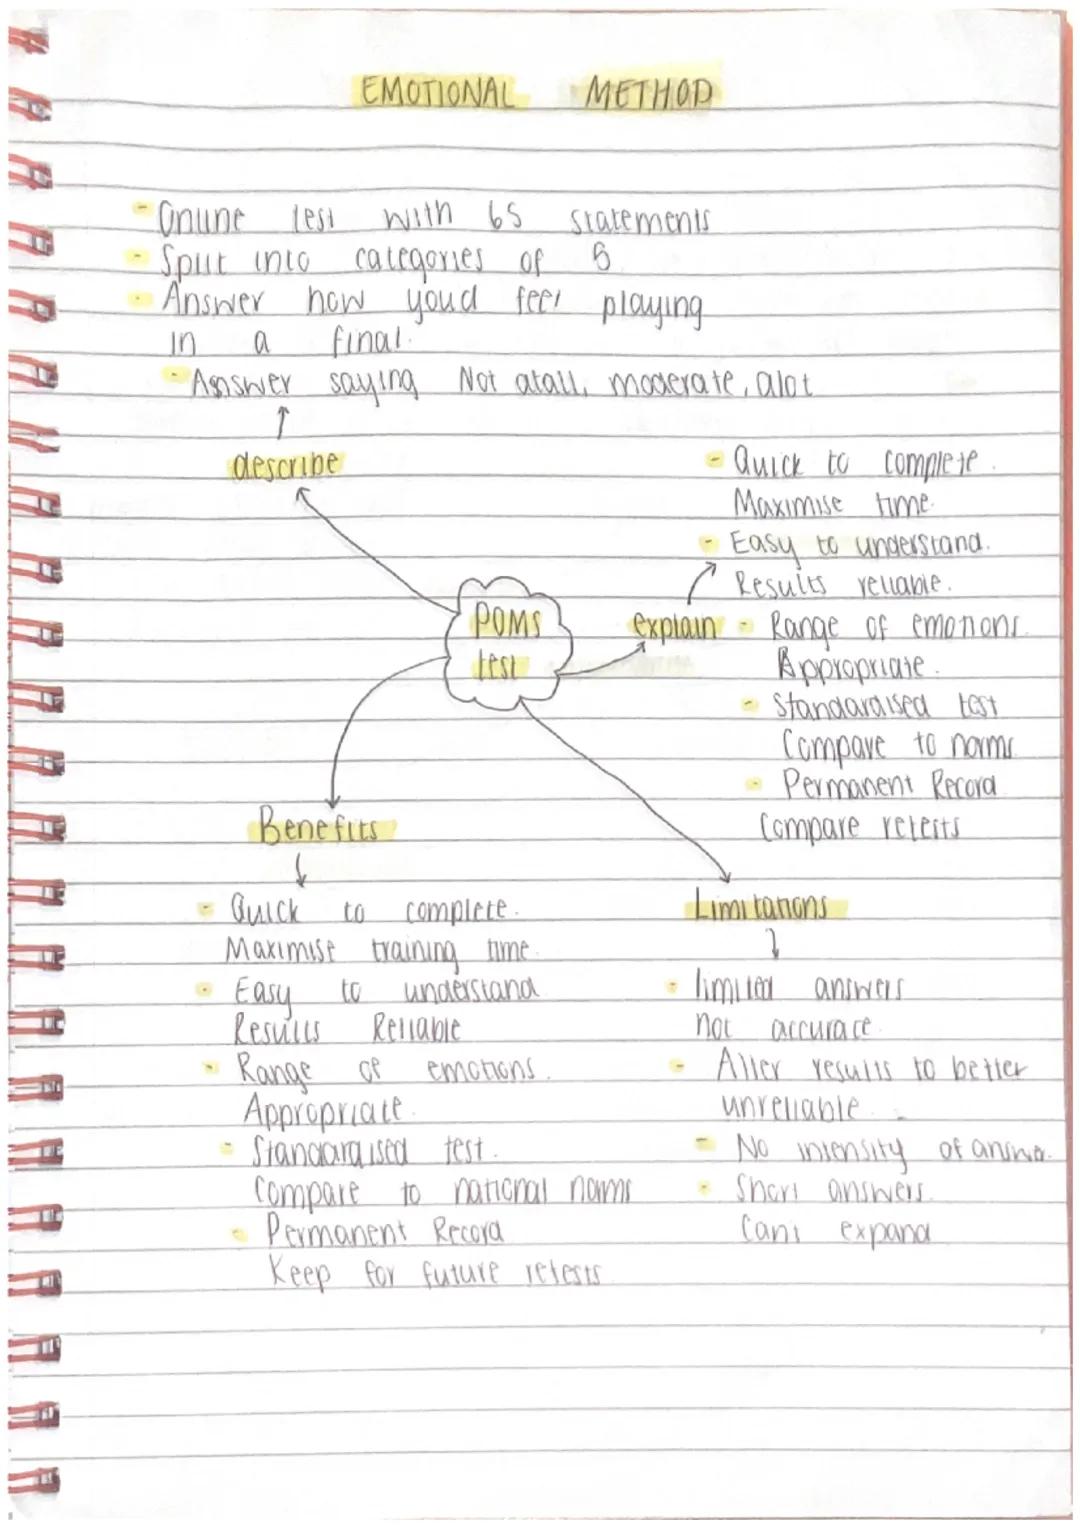 EMOTIONAL METHOD
- Online test with 65 statements
- Split into categories of 6
- Answer how youd feel playing
in a final.
- Answer saying Not atall, moderate, alot
describe
- Quick to complete.
Maximise time.
- Easy to understand.
Results reliable.
POMS
test
explain
- Range of emotions.
Appropriate.
- Standardised test
Compare to norms
- Permanent Record
Compare retests
Benefits
- Quick to complete.
Maximise training time.
- Easy to understand
Results Reliable
- Range of emotions.
Appropriate.
- Standardised test.
Compare to national norms
- Permanent Record
Keep for future retests
Limitations
- limited answers
not accurate.
- Alter results to better
unreliable.
- No intensity of answer.
- Short answers.
Cant expand